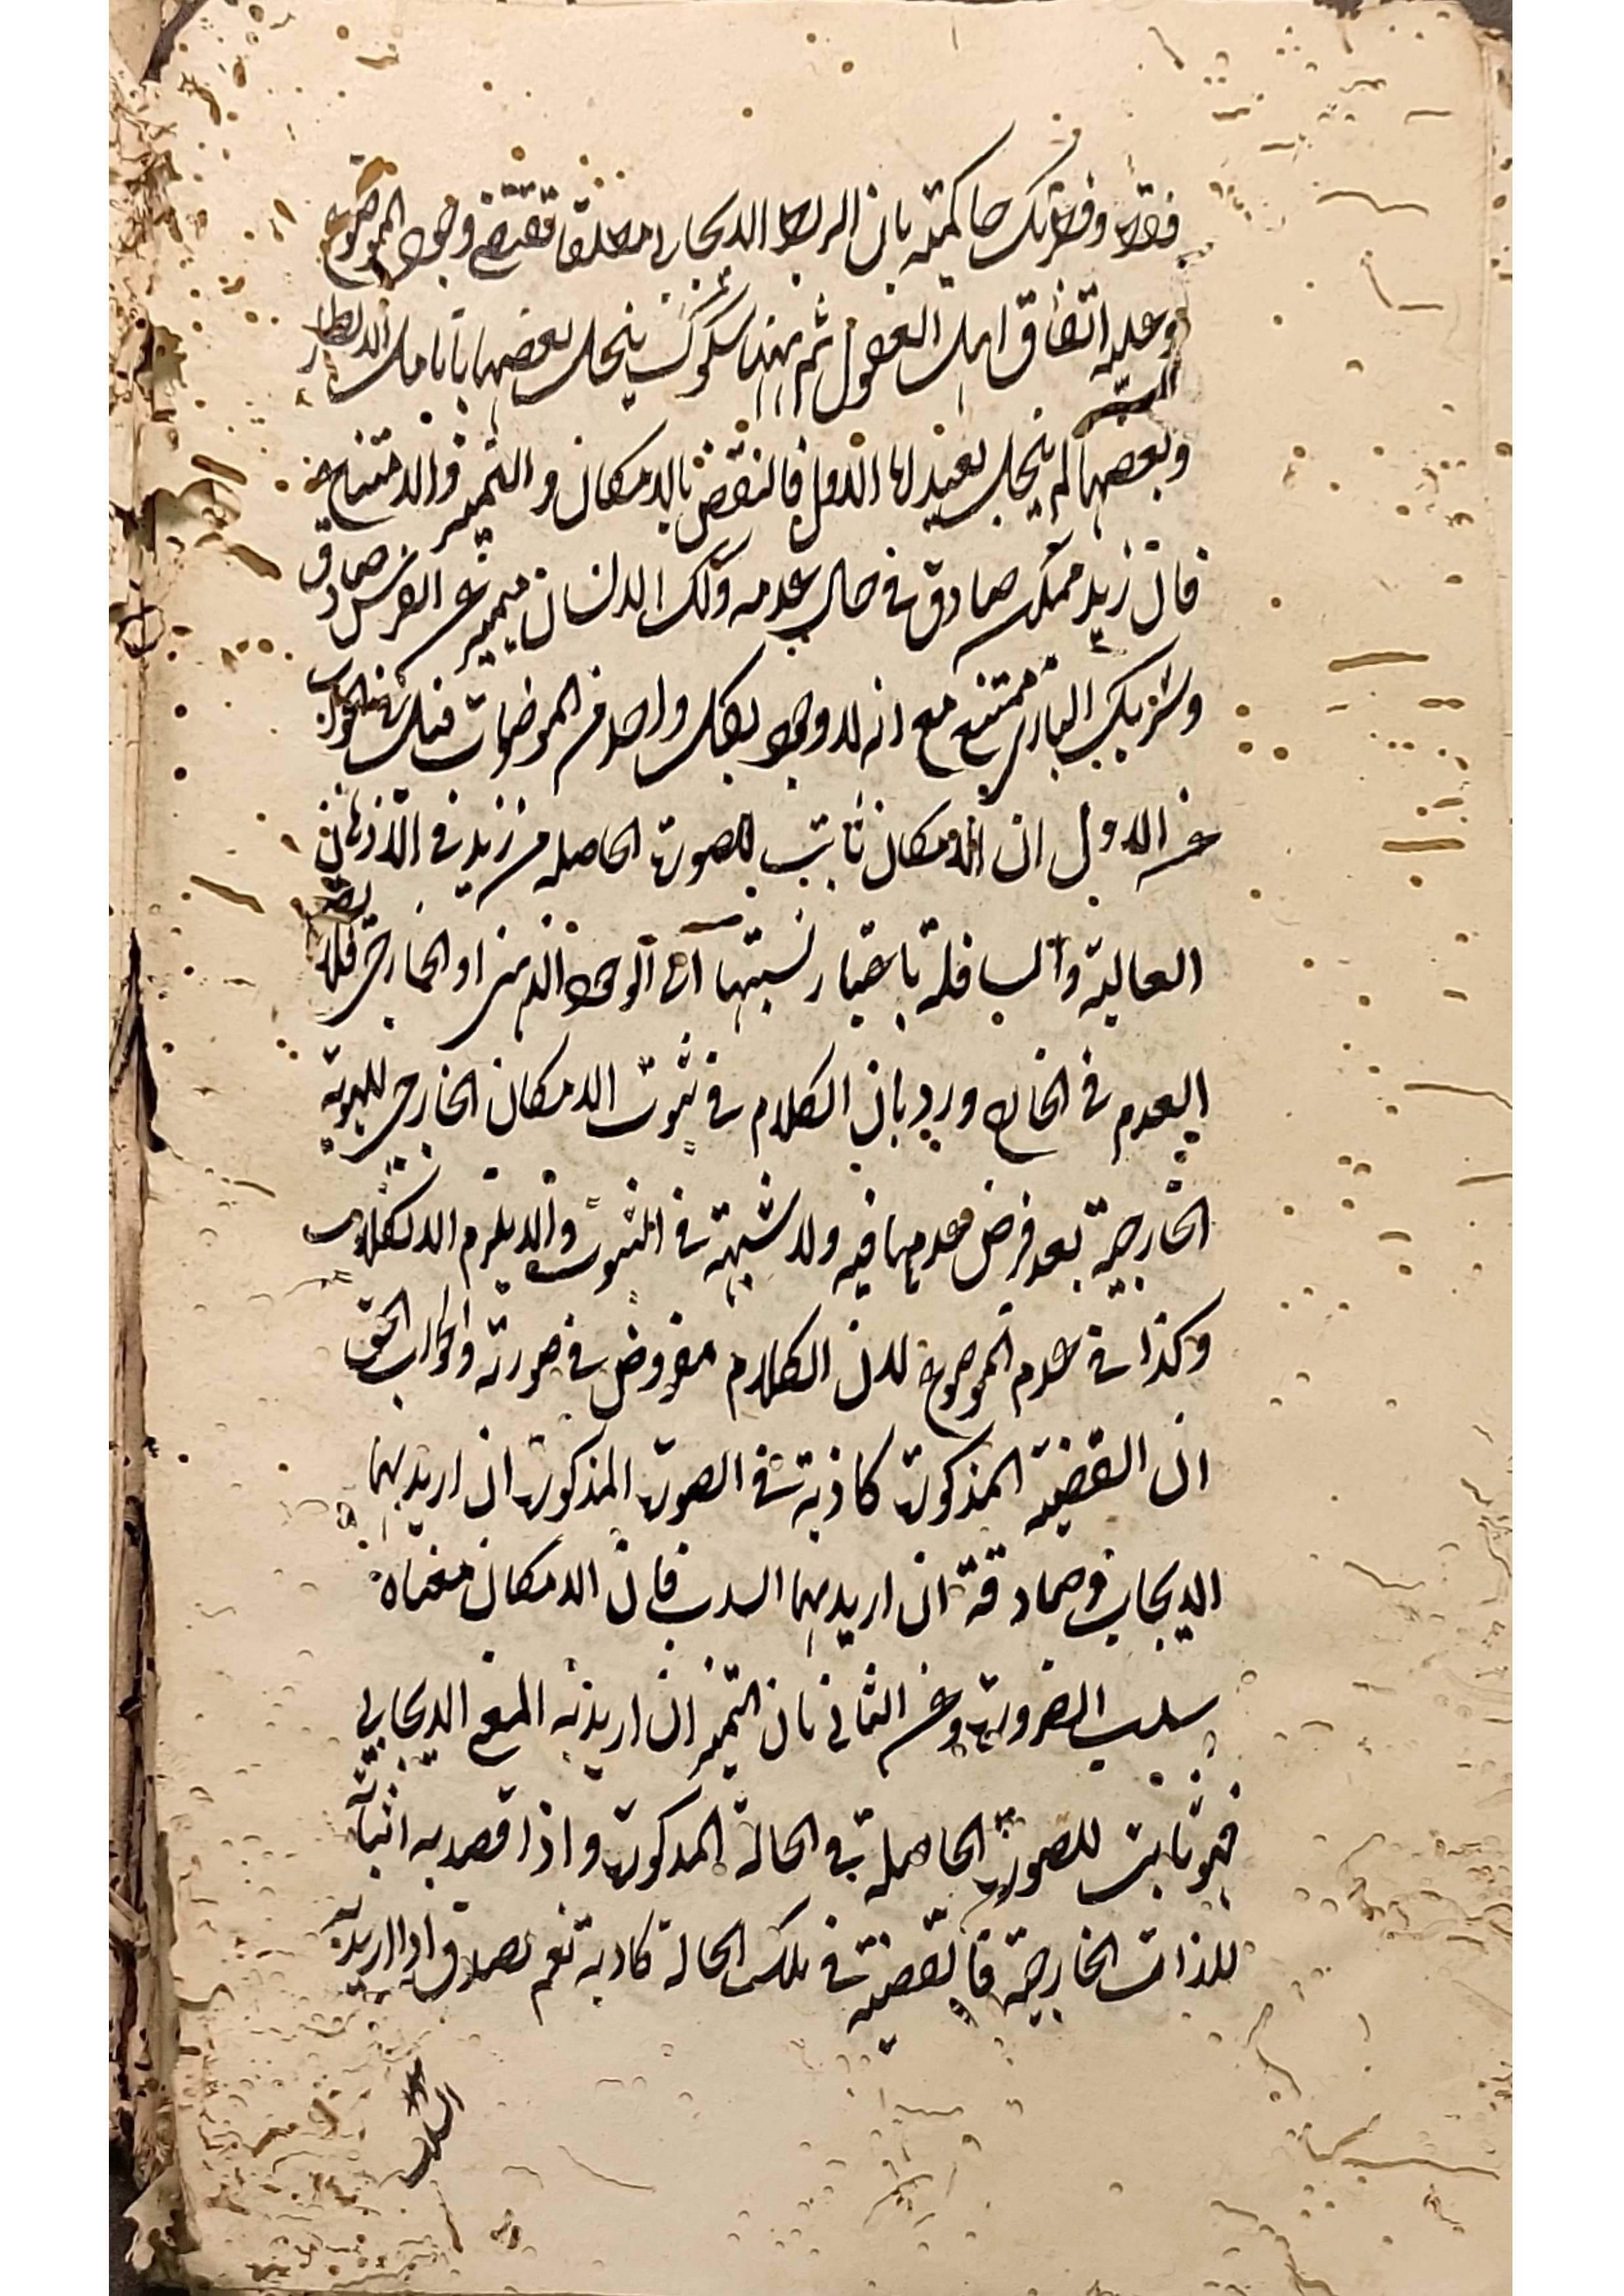 فقط وفطرتك حاكمة بان الربط الايجابي مطلقا تقتضي وجود الموضوع
وعليه اتفاق اهل العقول ثم ههنا شكوك ينحل بعضها بانامل الانظار
وبعضها لم ينحل بعيد لها الاول فالنقض بالامكان والتميز والامتناع
فان زيد ممكن صادق في حال عدمه وكذلك الانسان متميز عن الفرس صادق
وشريك الباري ممتنع مع انه لا وجود لكل واحد من الموضوعات الجواب
عن الاول ان الامكان ثابت للصورة الحاصلة من زيد في الاذهان
العالية والسافلة باعتبار نسبتها الى الوجود الذهني او الخارجي فلا يضر
العدم في الخارج ورد بان الكلام في ثبوت الامكان الخارجي للهوية
الخارجية بعد فرض عدمها فيه ولا شبهة في الثبوت والا يلزم الانقلاب
وكذا في عدم الموضوع لان الكلام مفروض في صورته والجواب الحق
ان القضية المذكورة كاذبة في الصورة المذكورة ان اريد بها
الايجاب وصادقة ان اريد بها السلب فان الامكان معناه
سلب الضرورة وعن الثاني بان التميز ان اريد به المعنى الايجابي
فهو ثابت للصورة الحاصلة في الحالة المذكورة واذا قصد به اثباته
للذات الخارجية فالقضية في تلك الحالة كاذبة نعم تصدق اذا اريد به
السلب